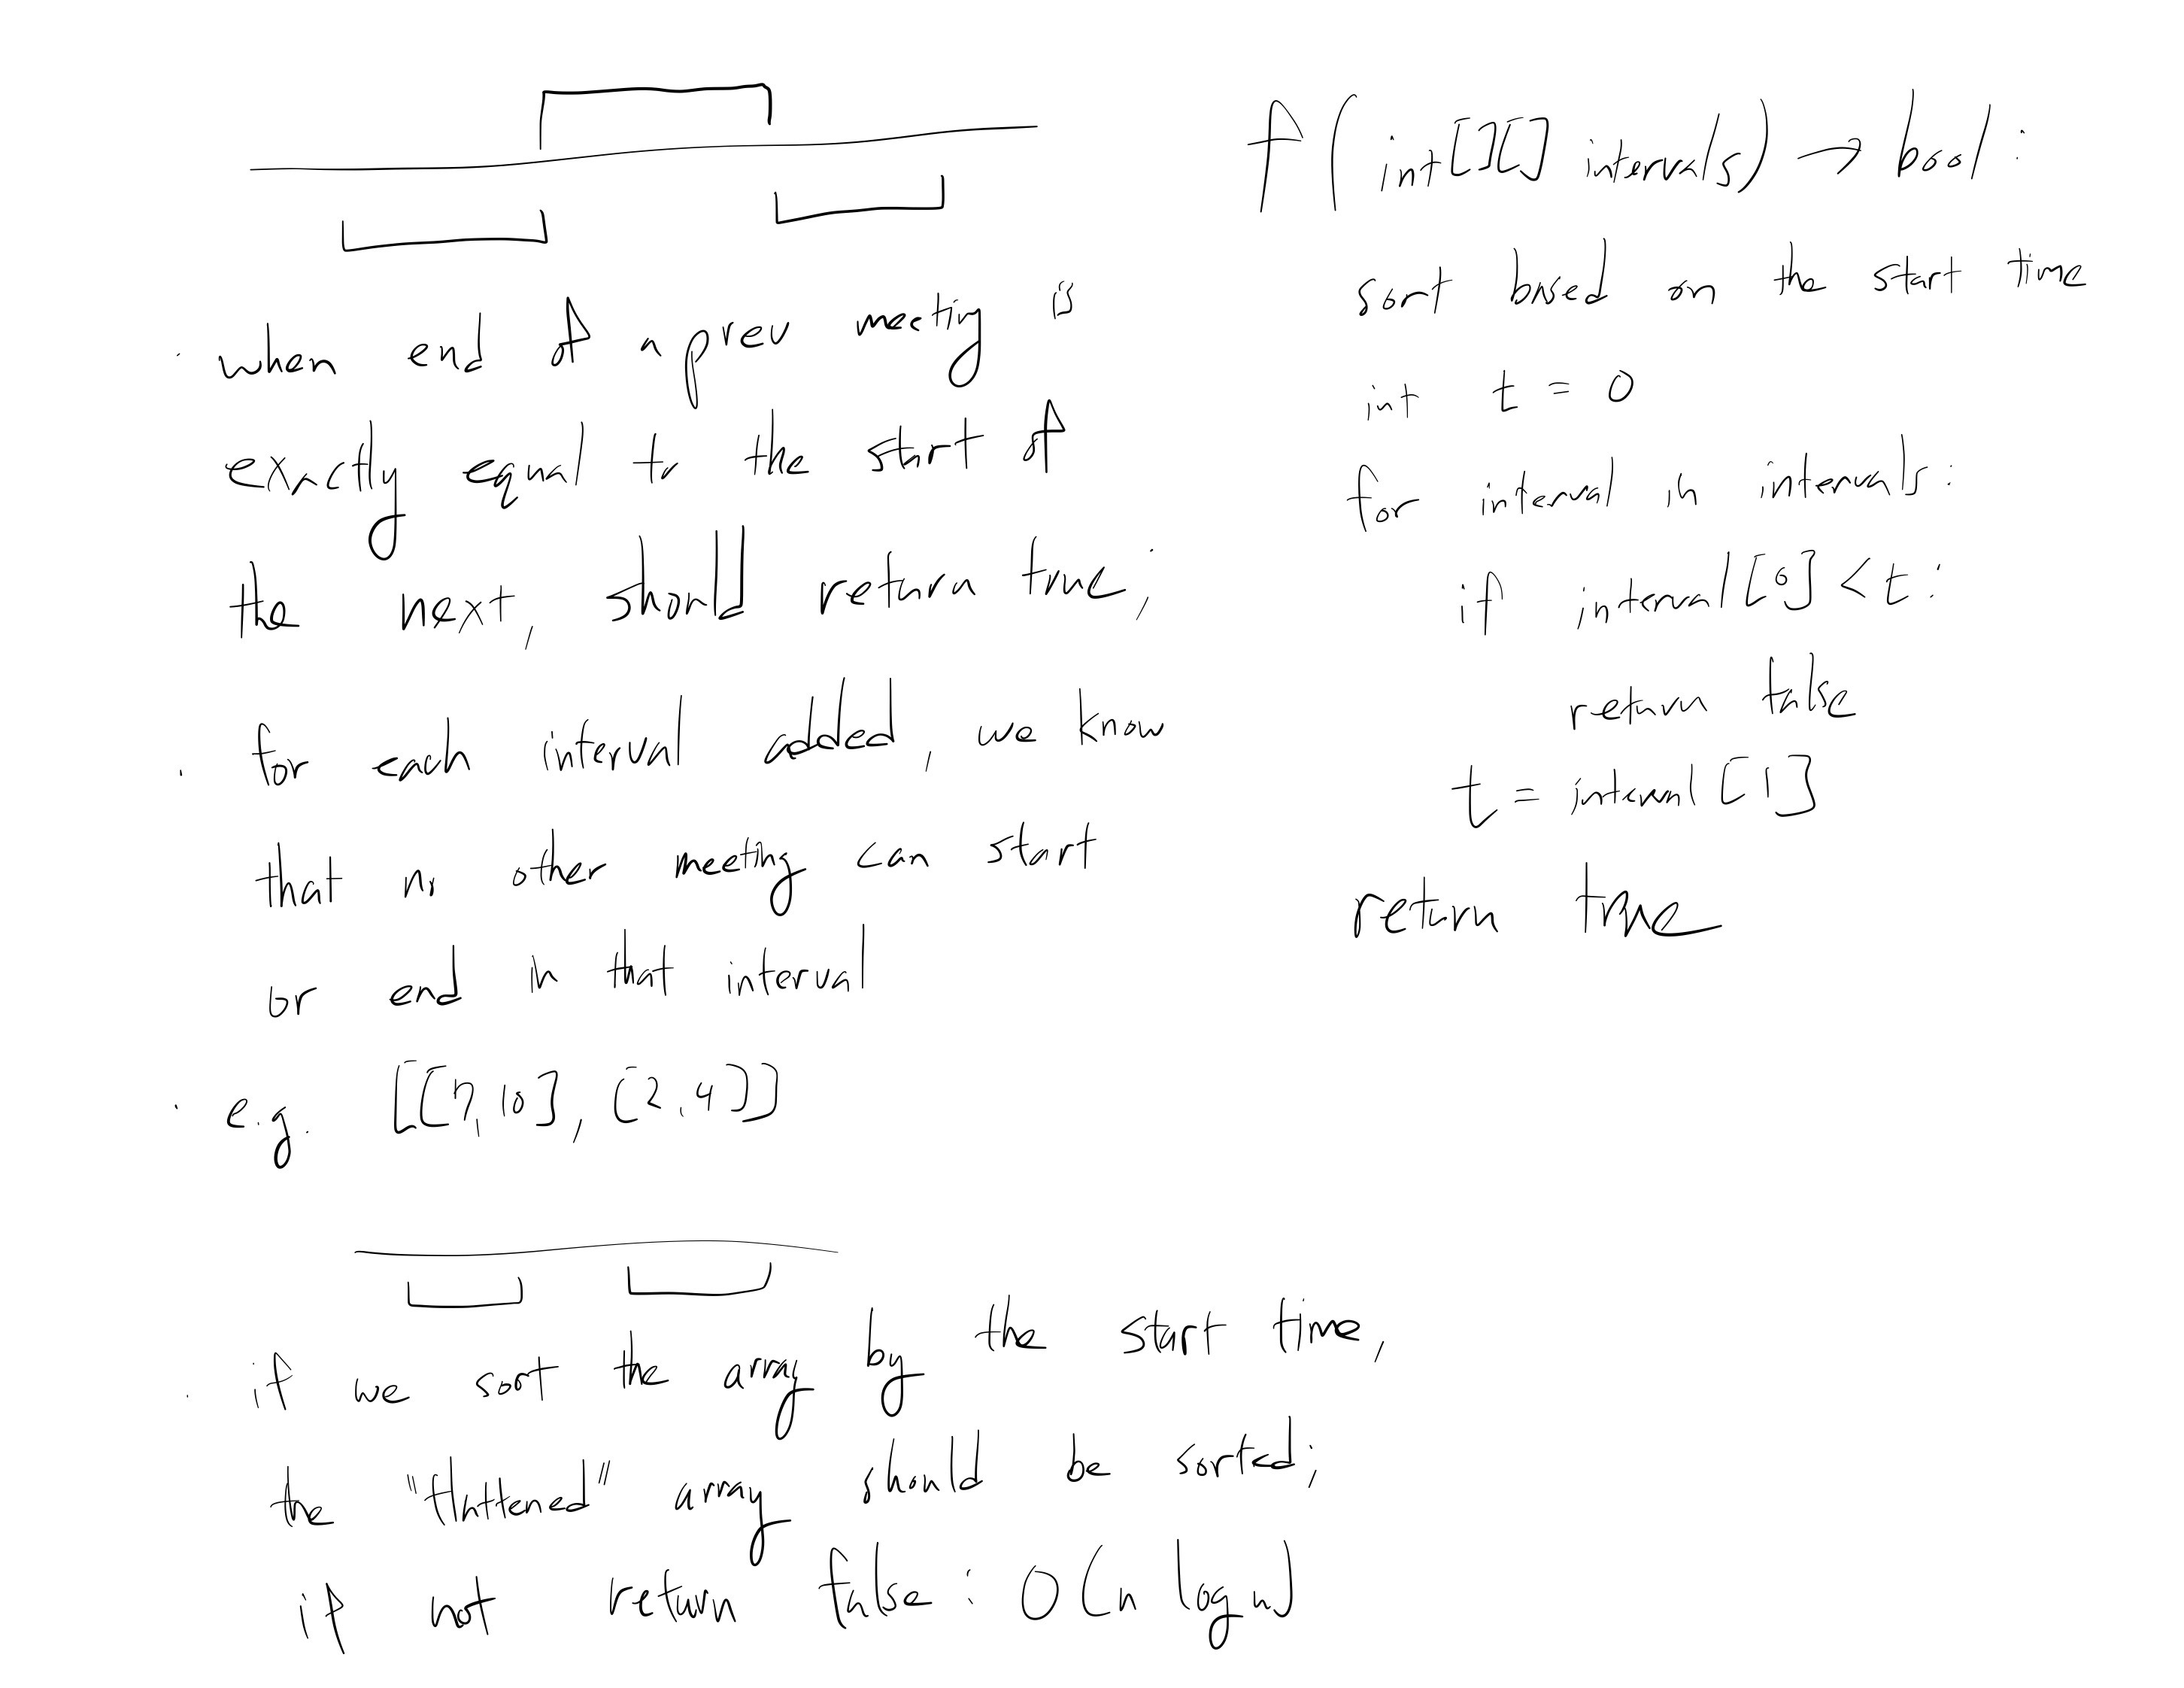 · when end of a prev meeting is
exactly equal to the start of
the next, should return true;
· for each interval added, we know
that no other meeting can start
or end in that interval
· e.g. [[7,10],[2,4]]
· if we sort the array by the start time,
the "flattened" array should be sorted;
if not return false: O(n log n)
f(int[][] intervals) → bool:
sort based on the start time
int t = 0
for interval in intervals:
if interval[0] < t:
return false
t = interval[1]
return true